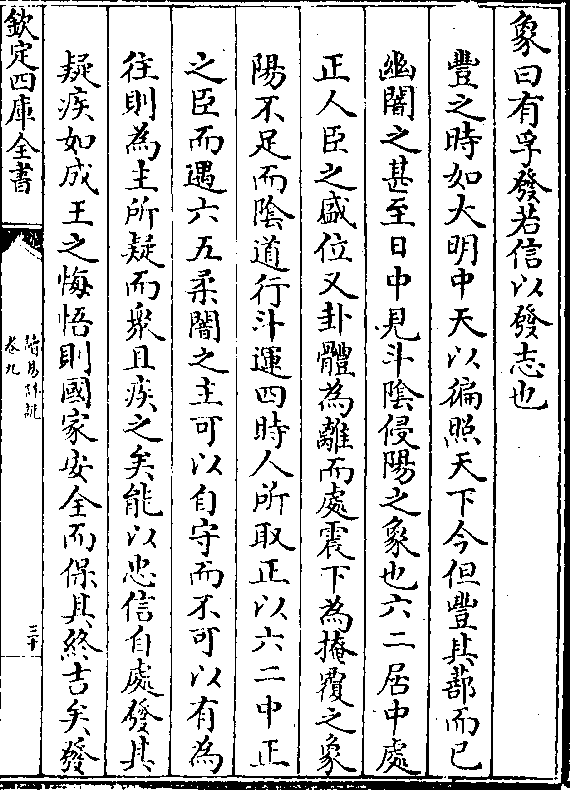 象曰有孚發若信以發志也
豐之時如大明中天以徧照天下今但豐其蔀而已
幽闇之甚至日中見斗陰侵陽之象也六二居中處
正人臣之盛位又卦體為離而處震下為掩覆之象
陽不足而陰道行斗運四時人所取正以六二中正
之臣而遇六五柔闇之主可以自守而不可以有為
往則為主所疑而衆且疾之矣能以忠信自處發其
疑疾如成王之悔悟則國家安全而保其終吉矣發
欽定四庫全書
卷九
三十